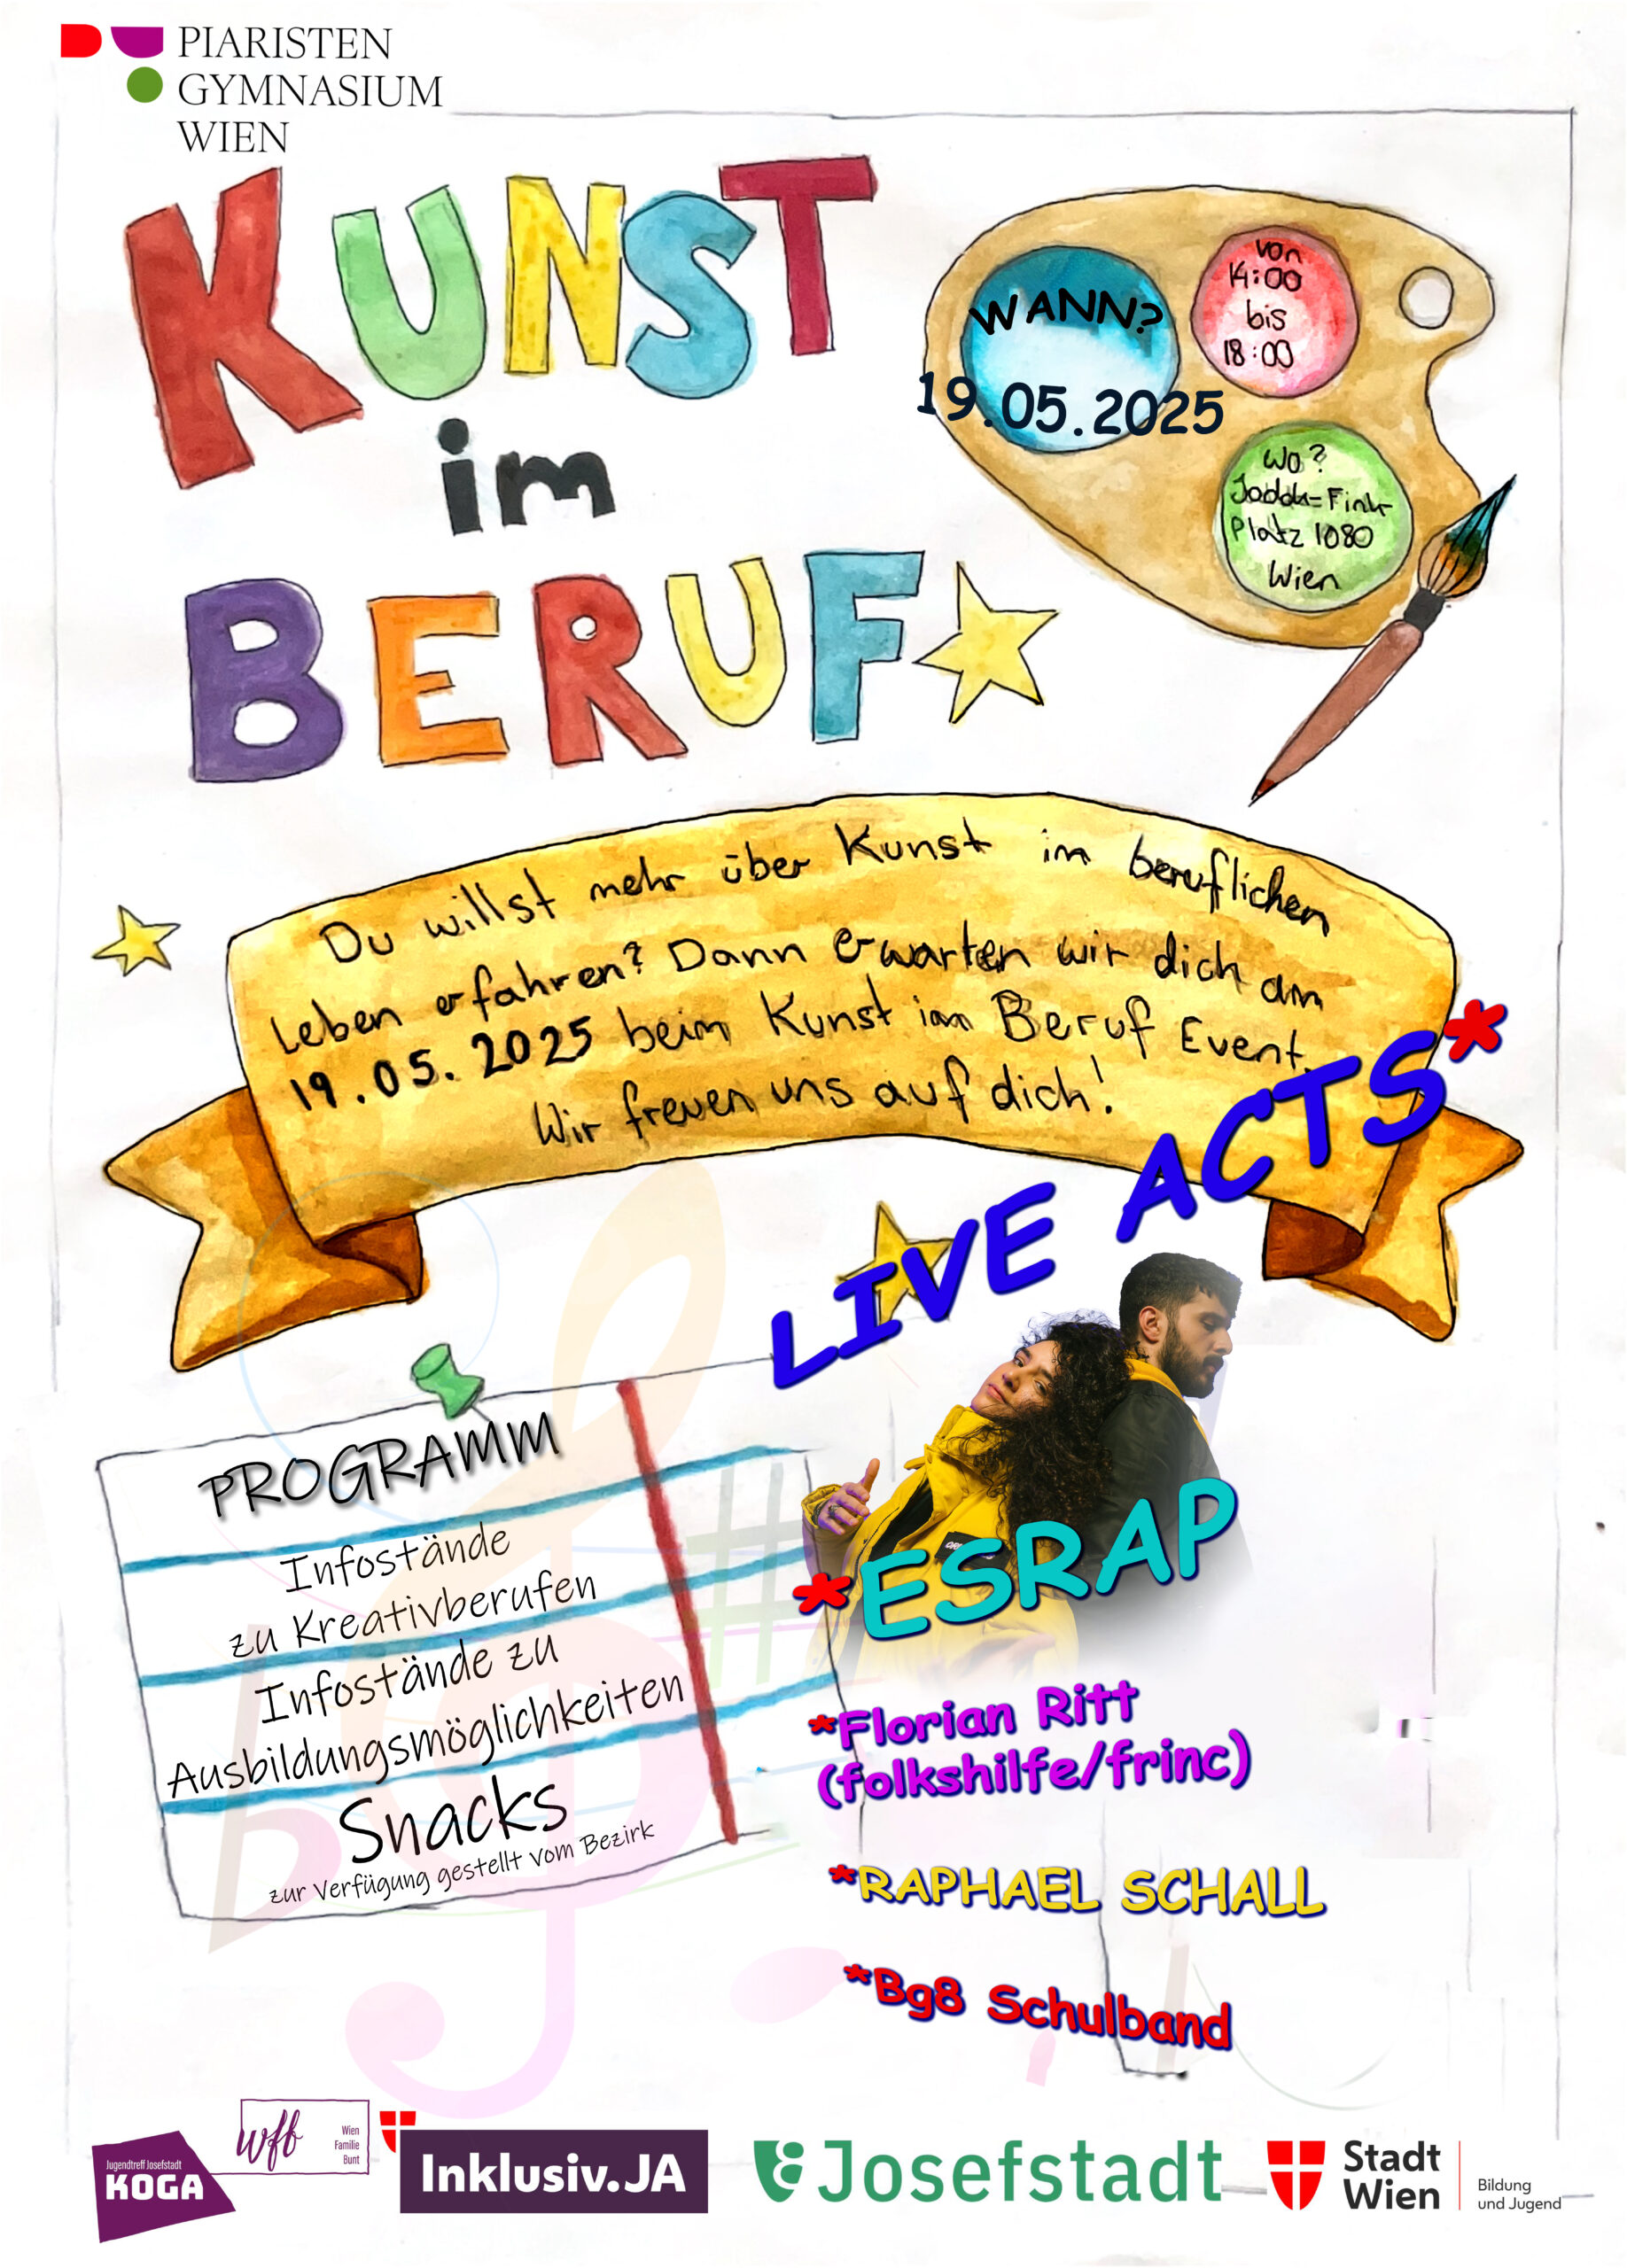 PIARISTEN
GYMNASIUM
WIEN
KUNST
im
BERUF
WANN?
19.05.2025
von
14:00
bis
18:00
Wo?
Jodok-Fink-
Platz 1080
Wien
Du willst mehr über Kunst im beruflichen
Leben erfahren? Dann erwarten wir dich am
19.05.2025 beim Kunst im Beruf Event.
Wir freuen uns auf dich!
LIVE ACTS*
PROGRAMM
Infostände
zu Kreativberufen
Infostände zu
Ausbildungsmöglichkeiten
Snacks
zur Verfügung gestellt vom Bezirk
*ESRAP
*Florian Ritt
(folkshilfe/frinc)
*RAPHAEL SCHALL
*Bg8 Schulband
Jugendtreff Josefstadt
KOGA
wfb
Wien
Familie
Bunt
Inklusiv.JA
Josefstadt
Stadt
Wien
Bildung
und Jugend